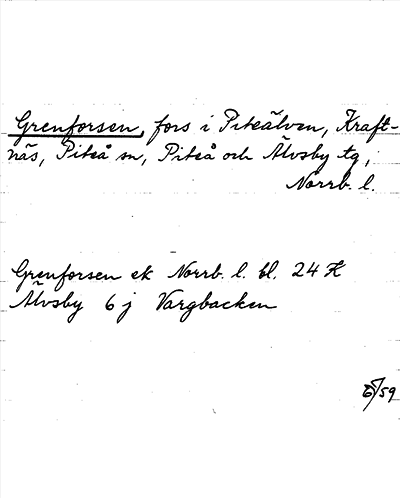 Grenforsen, fors i Piteälven, Kraft-
näs, Piteå sn, Piteå och Älvsby tg,
Norrb. l.
Grenforsen ek Norrb. l. bl. 24 K
Älvsby 6 j Vargbacken